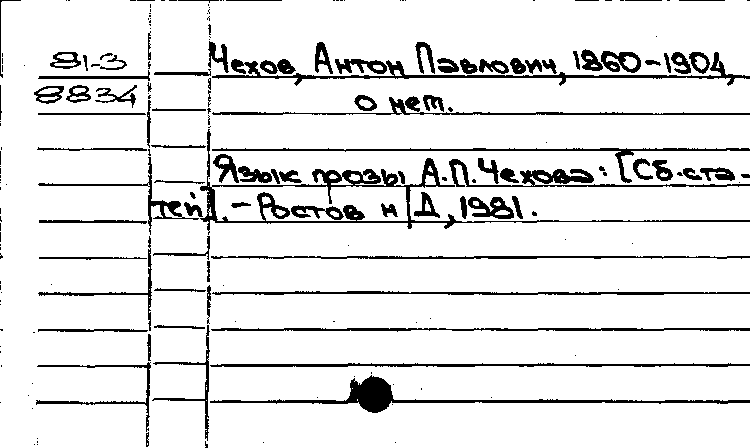 81-3 Чехов, Антон Павлович, 1860-1904,
8834 о нем.
Язык прозы А.П.Чехова: [Сб.ста-
тей]. - Ростов н/Д, 1981.